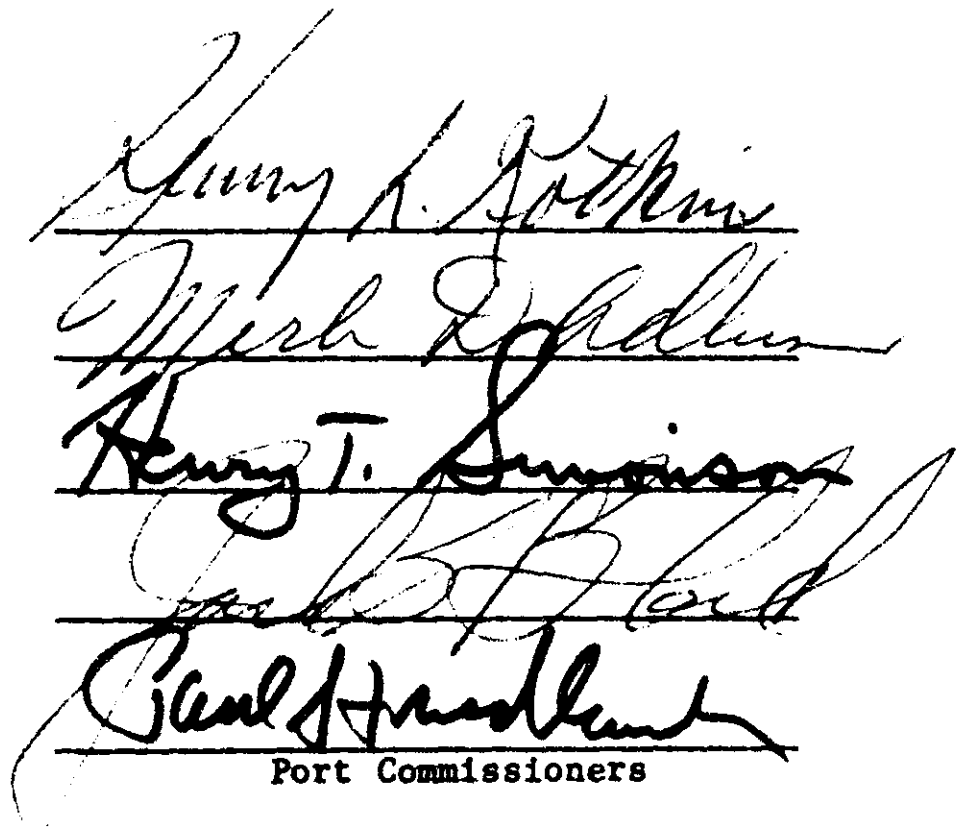 Henry L. Kotkins
Merle D. Adlum
Henry T. Simonson
Jack S. Block
Paul S Friedlander
Port Commissioners